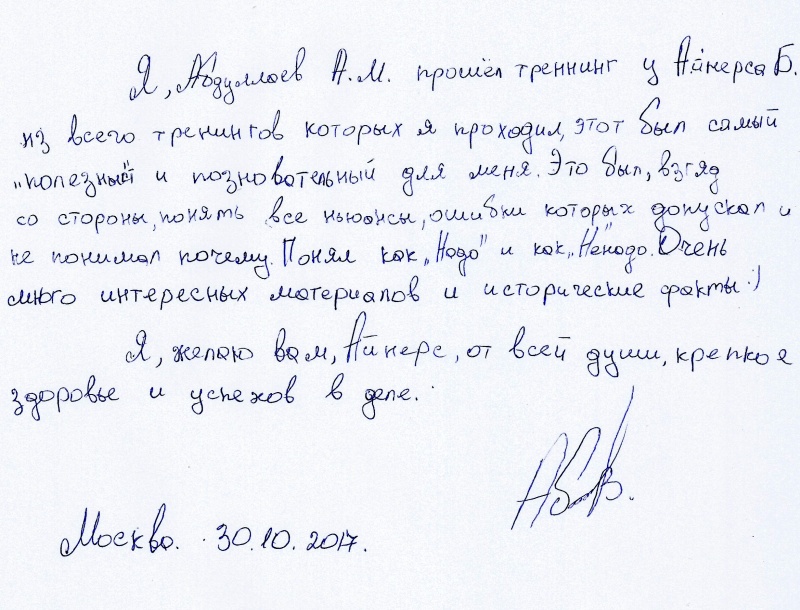 Я, Абдуллаев А.М. прошёл треннинг у Айнерса Б.
из всего тренингов которых я проходил, этот был самый
"полезный" и позновательный для меня. Это был, взгяд
со стороны, понять все ньюансы, ошибки которых допускал и
не понимал почему. Понял как „Надо" и как „Ненадо. Очень
много интересных материалов и исторические факты :)
Я, желаю вам, Айнерс, от всей души, крепкое
здоровье и успехов в деле.
Москва. 30.10.2017.